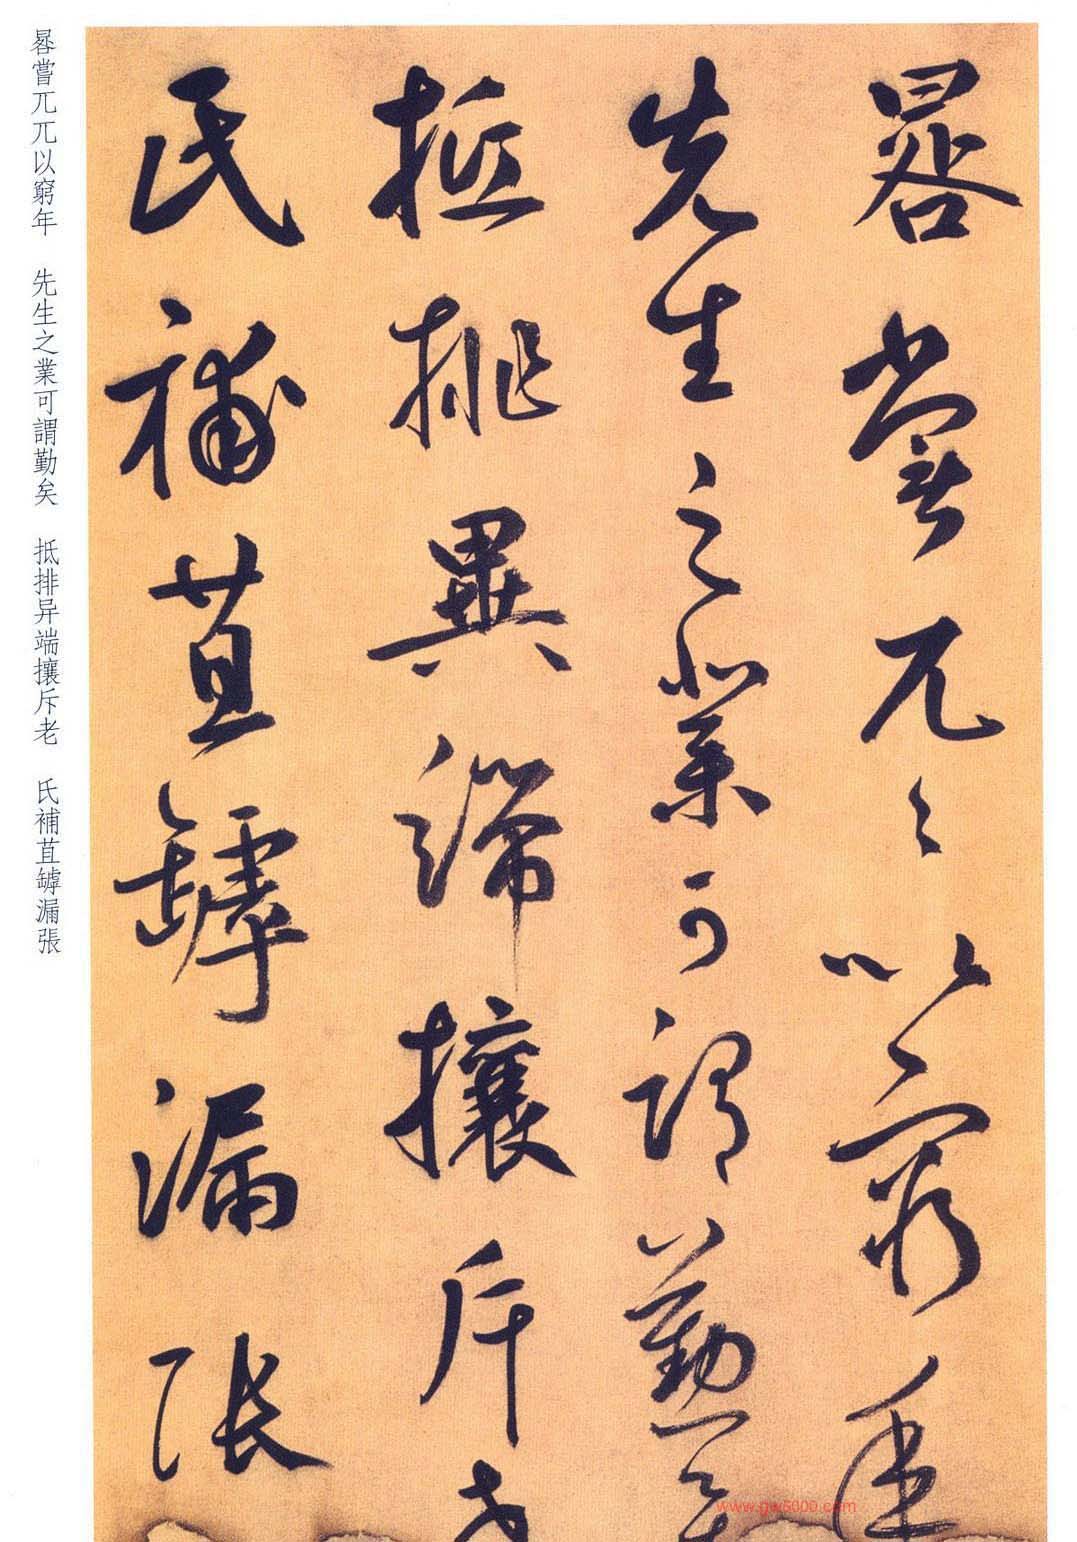 晷嘗兀〻以窮年
先生之業可謂勤矣
抵排異端攘斥老
氏補苴罅漏張
晷嘗兀兀以窮年 先生之業可謂勤矣 抵排异端攘斥老 氏補苴罅漏張
www.gw5000.com